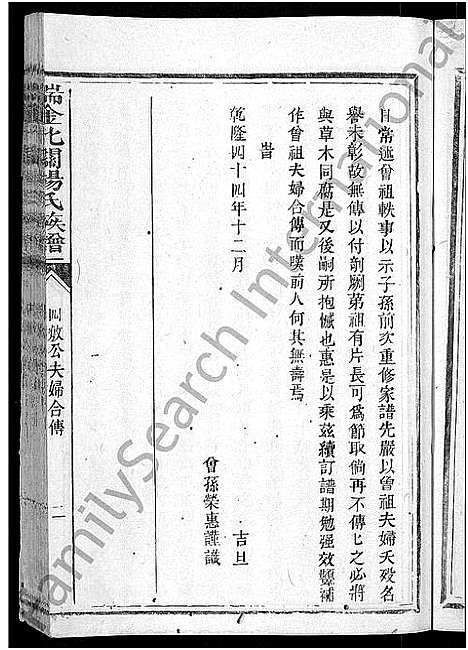 日常述曾祖軼事以示子孫前次重修家譜先嚴以曾祖夫婦夭殁名
譽未彰故無傳以付剞劂第祖有片長可爲節取倘再不傳匕之必將
與草木同腐是又後嗣所抱憾也惠是以乘茲續訂譜期勉强效顰補
作曾祖夫婦合傳而嘆前人何其無壽焉
旹
乾隆四十四年十二月 吉旦
曾孫榮惠謹識
瑞金北關楊氏族譜
四敖公夫婦合傳
二
FamilySearch International